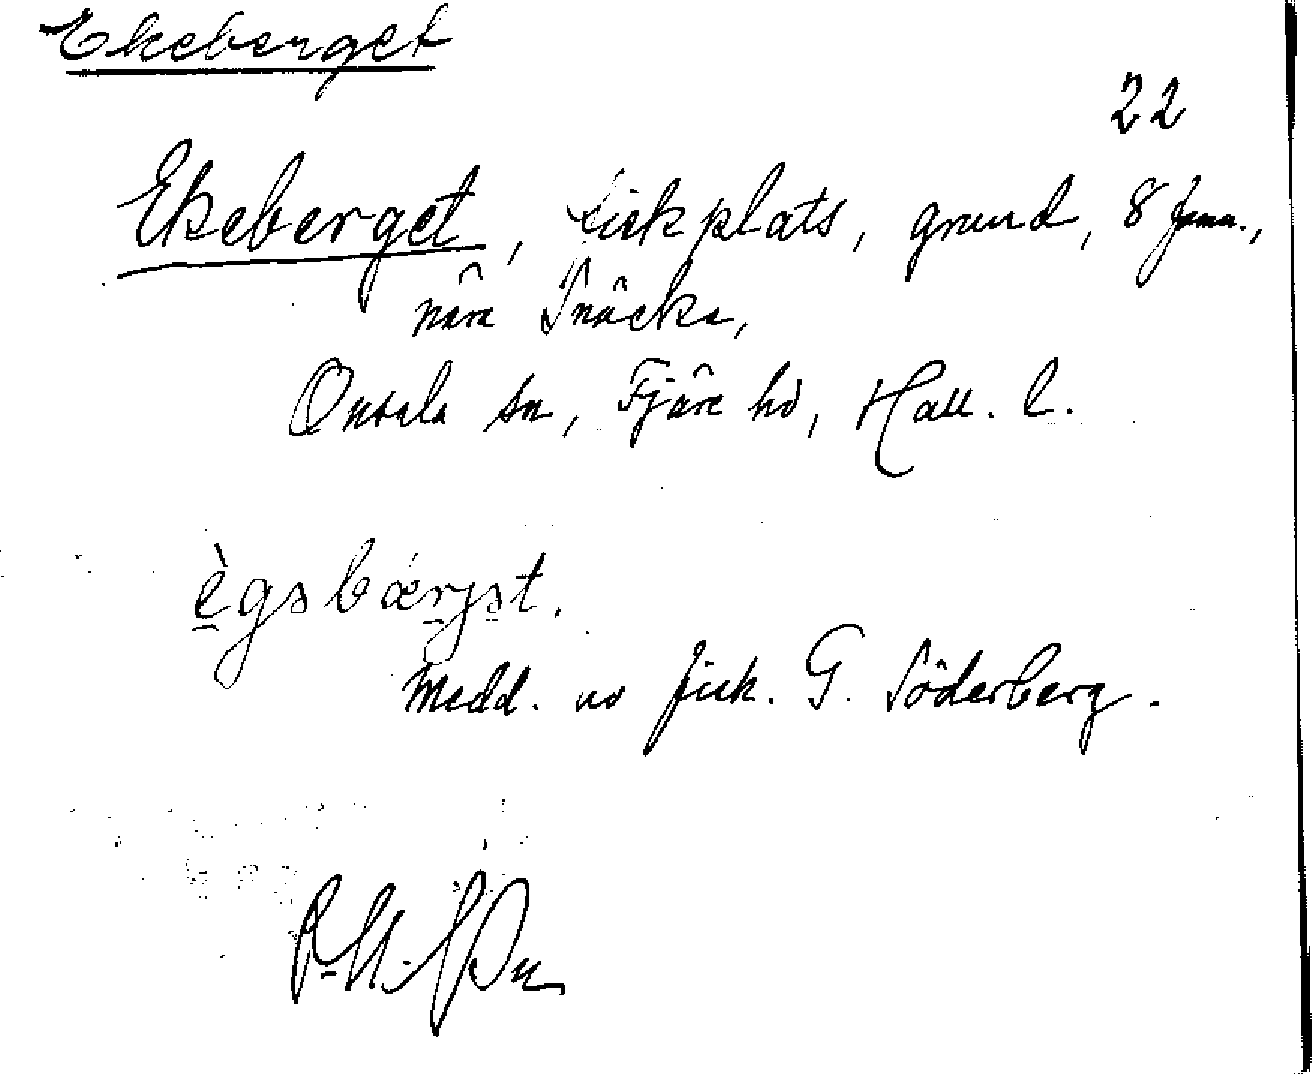 Ekeberget
22
Ekeberget, fiskplats, grund, 8 famn.,
nära Snäcka,
Onsala sn, Fjäre hd, Hall. l.
ègsbærjət.
Medd. av fisk. G. Söderberg.